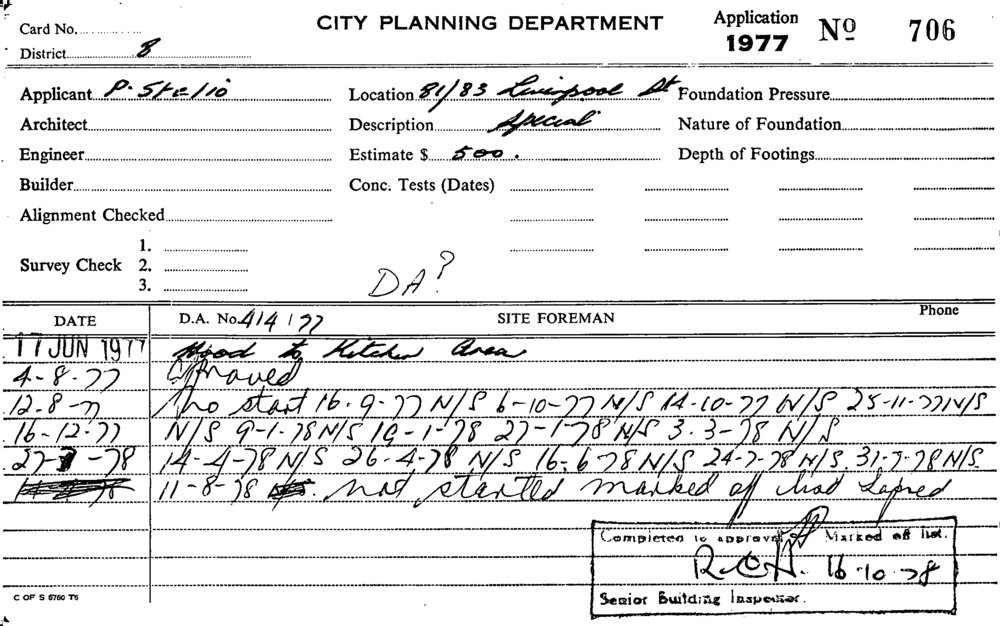 CITY PLANNING DEPARTMENT
Application 1977 Nº 706
Card No.
District 8
Applicant P. Stelio
Location 81/83 Liverpool St
Foundation Pressure
Architect
Description Special
Nature of Foundation
Engineer
Estimate $ 500.
Depth of Footings
Builder
Conc. Tests (Dates)
Alignment Checked
Survey Check
1.
2.
3.
DA?
DATE D.A. No. 414/77 SITE FOREMAN Phone
17 JUN 1977 Hood to Kitchen Area
4-8-77 Approved
12-8-77 No start 16-9-77 N/S 6-10-77 N/S 14-10-77 N/S 25-11-77 N/S
16-12-77 N/S 9-1-78 N/S 19-1-78 27-1-78 N/S 3-3-78 N/S
27- -78 14-4-78 N/S 26-4-78 N/S 16-6-78 N/S 24-7-78 N/S 31-7-78 N/S
11-8-78 not started marked off lapsed
Completed to approval Marked off list.
R.C.H. 16-10-78
Senior Building Inspector.
C OF S 5750 T6